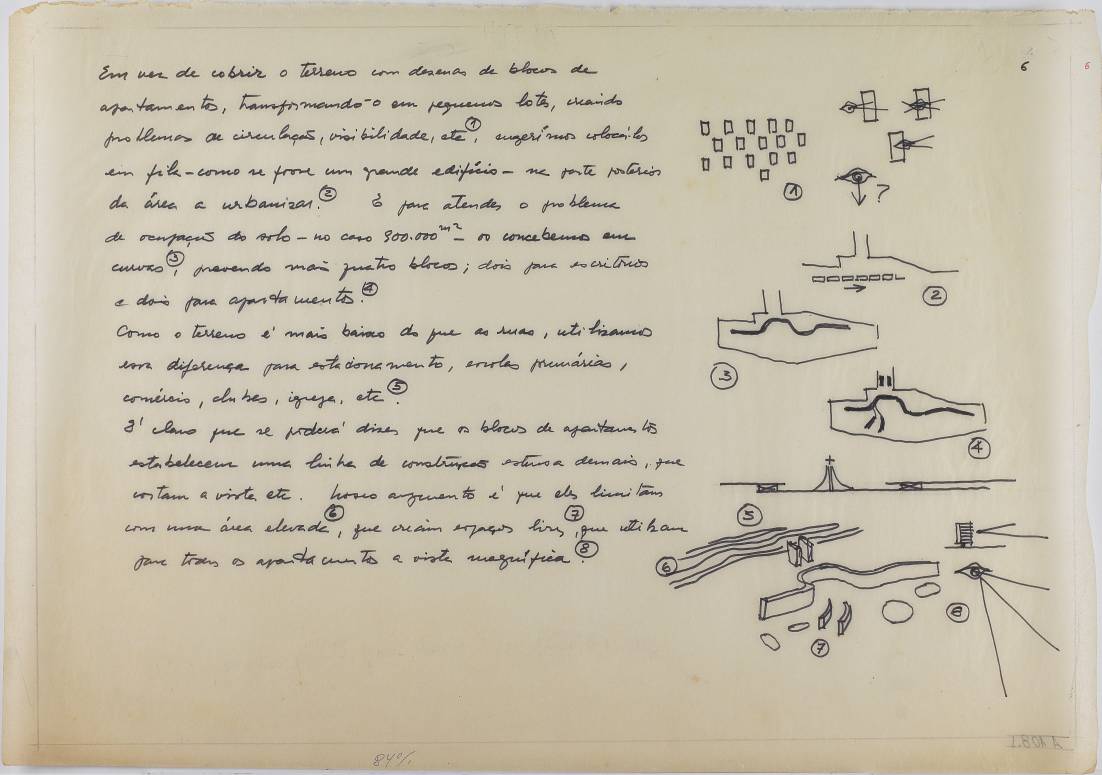 6
6
Em vez de cobrir o terreno com dezenas de blocos de
apartamentos, transformando-o em pequenos lotes, criando
problemas de circulação, visibilidade, etc ①, sugerimos colocá-los
em fila - como se fosse um grande edifício - na parte posterior
da área a urbanizar. ② E para atender o problema
de ocupação do solo - no caso 300.000 m² - os concebemos em
curvas ③, prevendo mais quatro blocos; dois para escritórios
e dois para apartamentos. ④
Como o terreno é mais baixo do que as ruas, utilizamos
essa diferença para estacionamento, escolas primárias,
comércio, clubes, igreja, etc. ⑤
É claro que se poderá dizer que os blocos de apartamentos
estabelecem uma linha de construções extensa demais, que
cortam a vista etc. Nosso argumento é que eles limitam
com uma área elevada ⑥, que criam espaços livres ⑦, que utilizam
para todos os apartamentos a vista magnífica. ⑧
①
?
②
③
④
⑤
⑥
⑦
⑧
84%